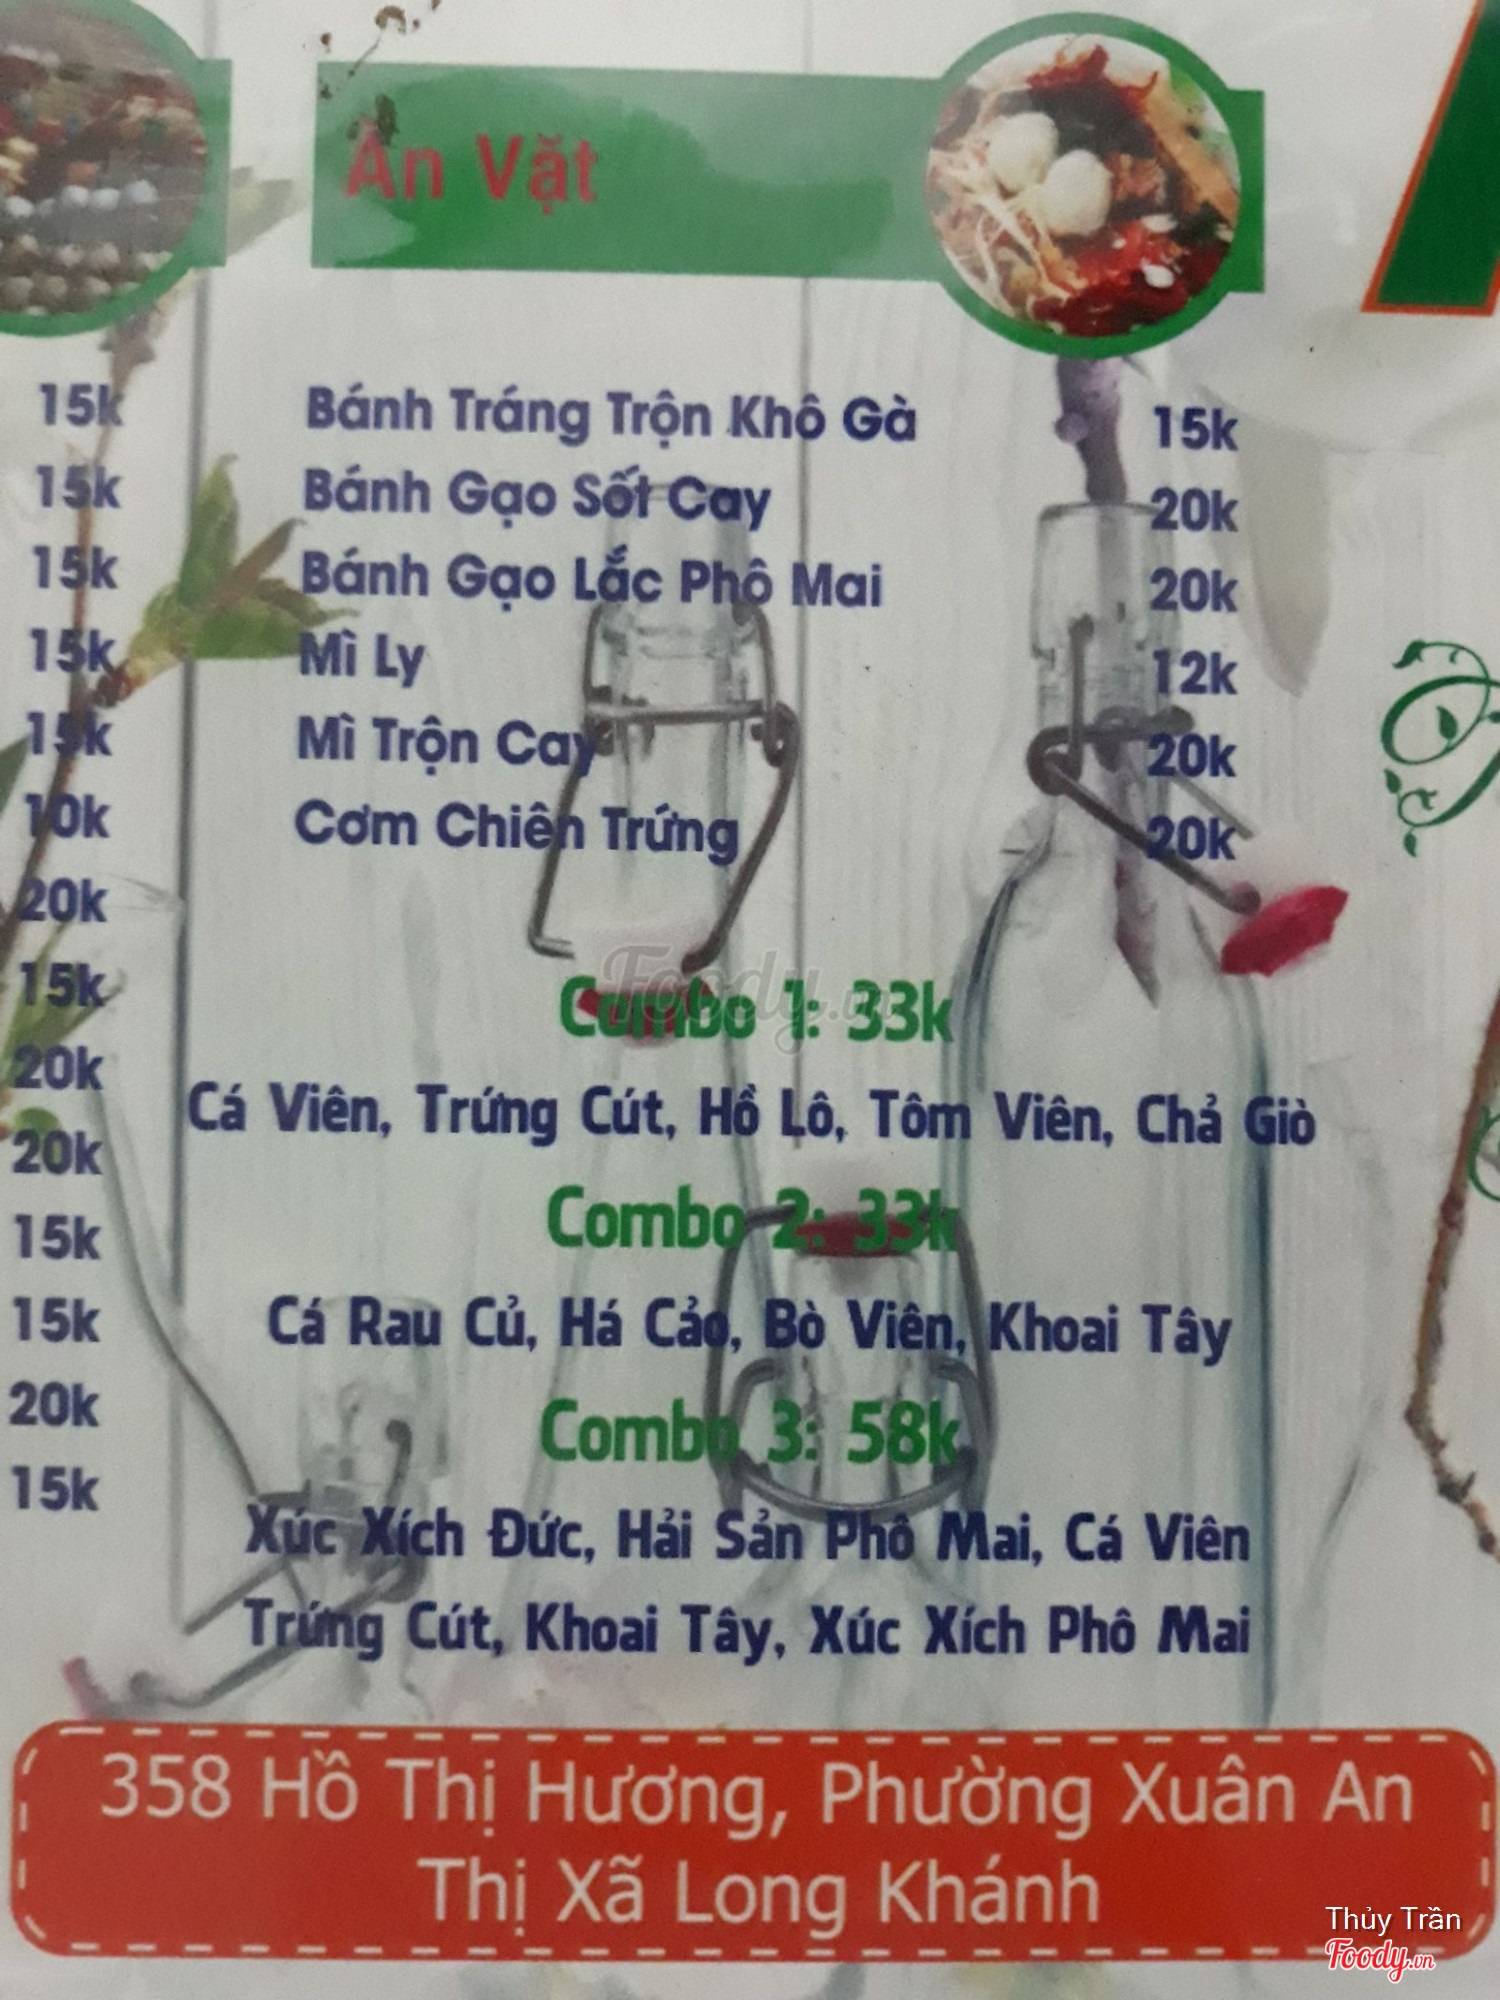 Ăn Vặt
15k
15k
15k
15k
15k
10k
20k
15k
20k
20k
15k
15k
20k
15k
Bánh Tráng Trộn Khô Gà 15k
Bánh Gạo Sốt Cay 20k
Bánh Gạo Lắc Phô Mai 20k
Mì Ly 12k
Mì Trộn Cay 20k
Cơm Chiên Trứng 20k
Foody.vn
Combo 1: 33k
Cá Viên, Trứng Cút, Hồ Lô, Tôm Viên, Chả Giò
Combo 2: 33k
Cá Rau Củ, Há Cảo, Bò Viên, Khoai Tây
Combo 3: 58k
Xúc Xích Đức, Hải Sản Phô Mai, Cá Viên
Trứng Cút, Khoai Tây, Xúc Xích Phô Mai
358 Hồ Thị Hương, Phường Xuân An
Thị Xã Long Khánh
Thủy Trần
Foody.vn